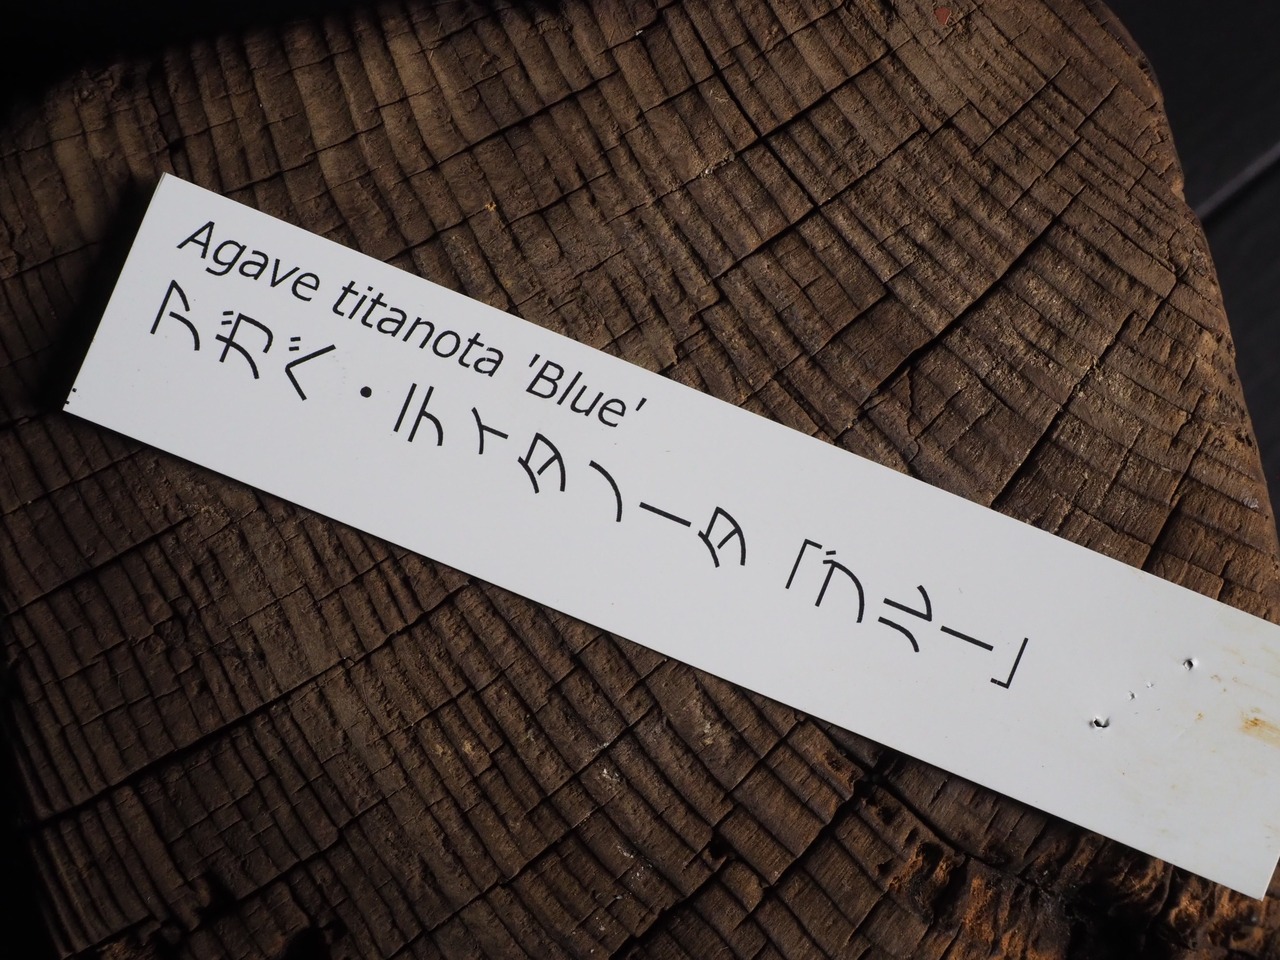 Agave titanota 'Blue'
アガベ・ティタノータ「ブルー」